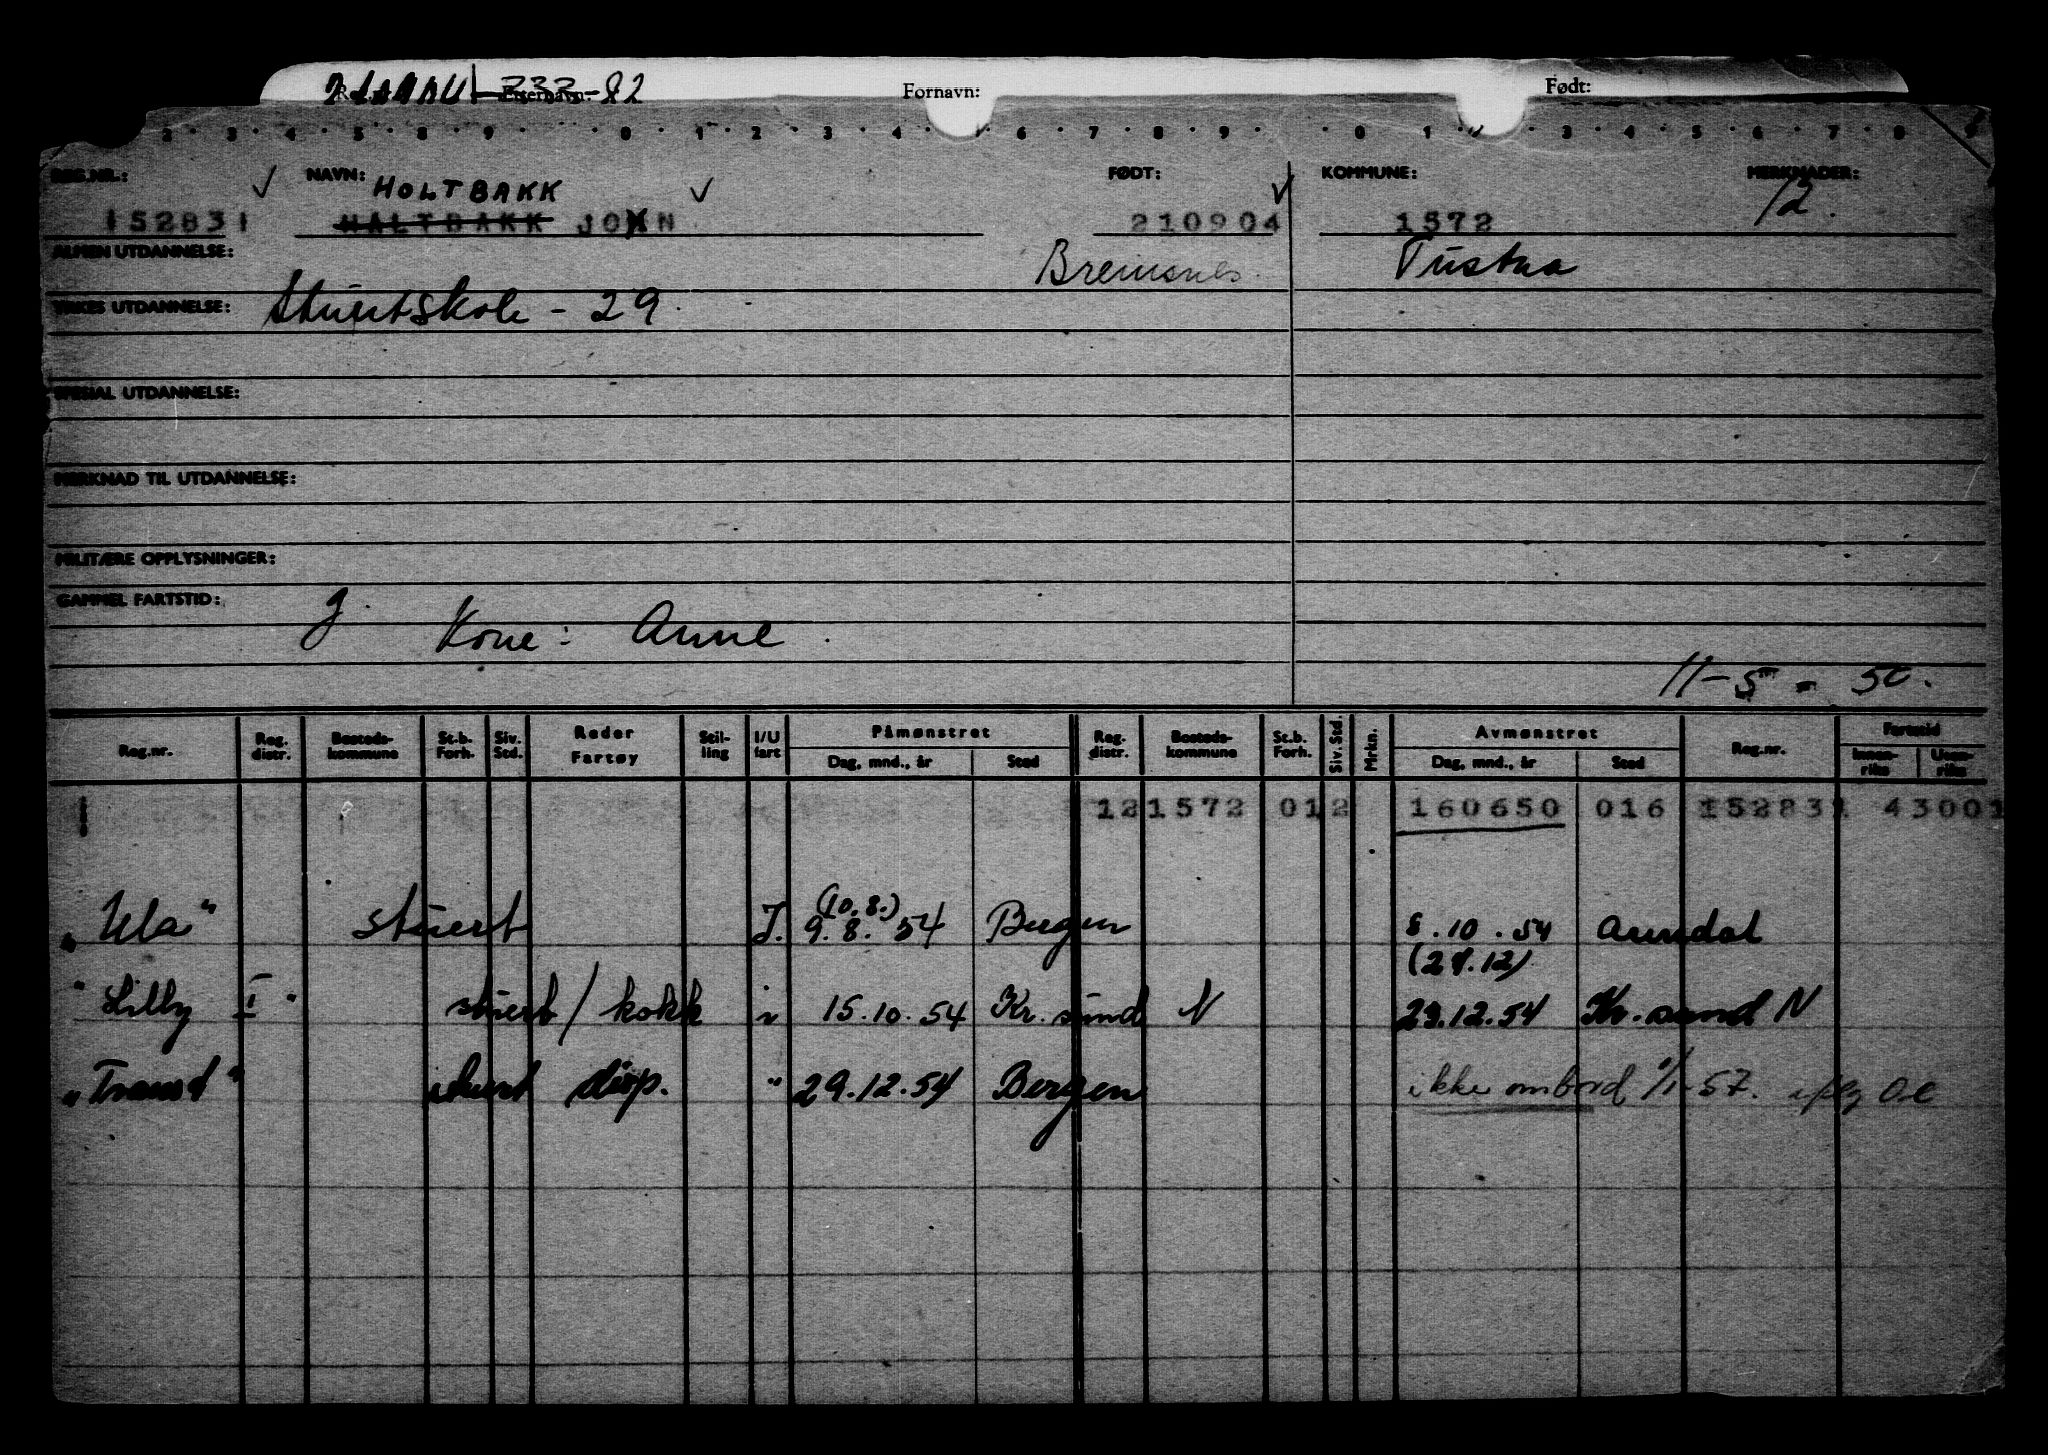 Etternavn: -82 Fornavn: Født:
2 · 3 · 4 · 5 · 8 · 9 · 0 · 1 · 2 · 3 · 4 · 6 · 7 · 8 · 9 · 0 · 1 · 3 · 4 · 5 · 6 · 7 · 8
REG.NR.: NAVN: HOLTBAKK FØDT: KOMMUNE: MERKNADER:
152831 HALTBAKK JOHN 210904 1572 12.
ALMEN UTDANNELSE: Bremsnes. Tustna
YRKES UTDANNELSE: Stuertskole - 29.
SPESIAL UTDANNELSE:
MERKNAD TIL UTDANNELSE:
MILITÆRE OPPLYSNINGER:
GAMMEL FARTSTID: g. Kone: Anne.
11-5-50.
Reg.nr. Reg. distr. Bosteds-kommune St.b. Forh. Siv. Std. Reder Fartøy Stil-ling I/U fart Påmønstret Dag, mnd., år Sted Reg. distr. Bosteds-kommune St.b. Forh. Siv. Std. Mrkn. Avmønstret Dag, mnd., år Sted Reg.nr. Fartstid Innen-riks Uten-riks
1 121572 012 160650 016 152831 43001
(10.8.)
"Ula" stuert I. 9.8.54 Bergen 8.10.54 Arendal
(28.12)
"Lilly I" stuert/kokk " 15.10.54 Kr.sund N 29.12.54 Kr.sund N
" stuert disp. " 29.12.54 Bergen ikke ombord 1/1-57.